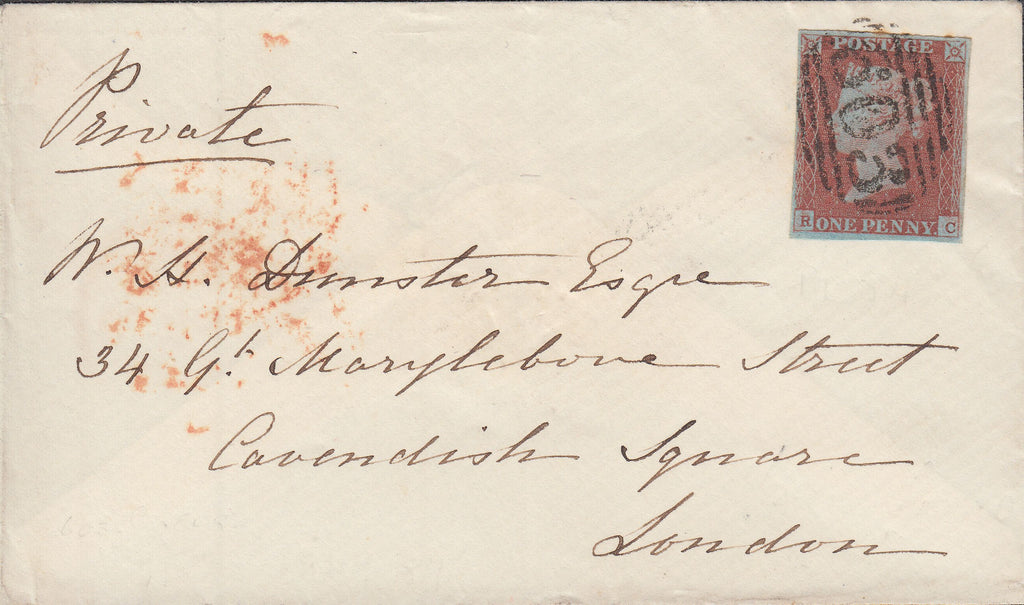 Private
POSTAGE
R ONE PENNY C
W. H. Dunster Esqre
34 Gt. Marylebone Street
Cavendish Square
London